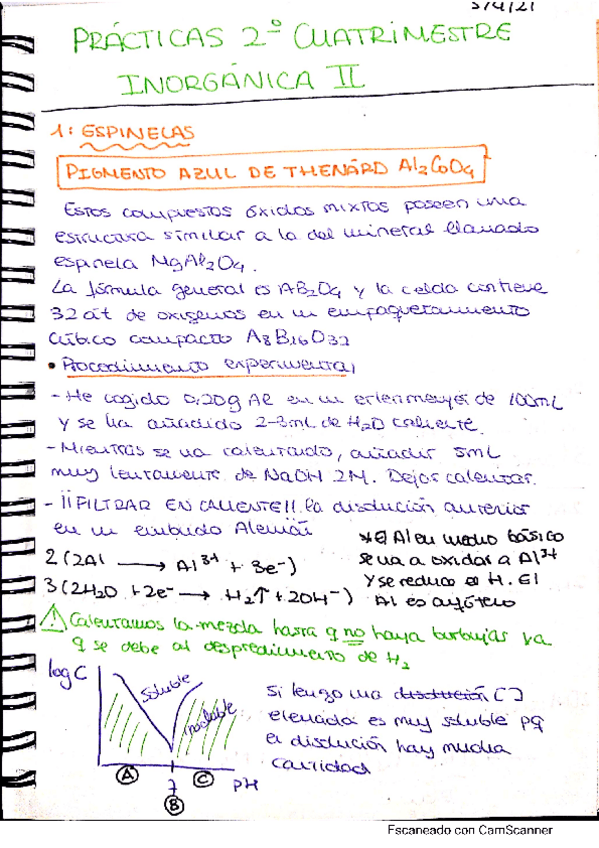 5/4/21
PRÁCTICAS 2º CUATRIMESTRE
INORGÁNICA II
1: ESPINELAS
PIGMENTO AZUL DE THENARD Al₂CoO₄
Estos compuestos óxidos mixtos poseen una
estructura similar a la del mineral llamado
espinela MgAl₂O₄.
La fórmula general es AB₂O₄ y la celda contiene
32 át de oxígenos en un empaquetamiento
cúbico compacto A₈B₁₆O₃₂
• Procedimiento experimental
- He cogido 0,20g Al en un erlenmeyer de 100mL
y se ha añadido 2-3mL de H₂O caliente.
- Mientras se va calentando, añadir 5mL
muy lentamente de NaOH 2M. Dejar calentar.
- ¡¡FILTRAR EN CALIENTE!! la disolución anterior
en un embudo Alemán
* El Al en medio básico
se va a oxidar a Al³⁺
y se reduce el H. El
Al es anfótero
2(2Al → Al³⁺ + 3e⁻)
3(2H₂O + 2e⁻ → H₂↑ + 2OH⁻)
⚠ Calentamos la mezcla hasta q no haya burbujas ya
q se debe al desprendimiento de H₂
log C
soluble
insoluble
A
7
C
pH
B
Si tengo una disolución [ ]
elevada es muy soluble pq
en disolución hay mucha
cantidad
Escaneado con CamScanner